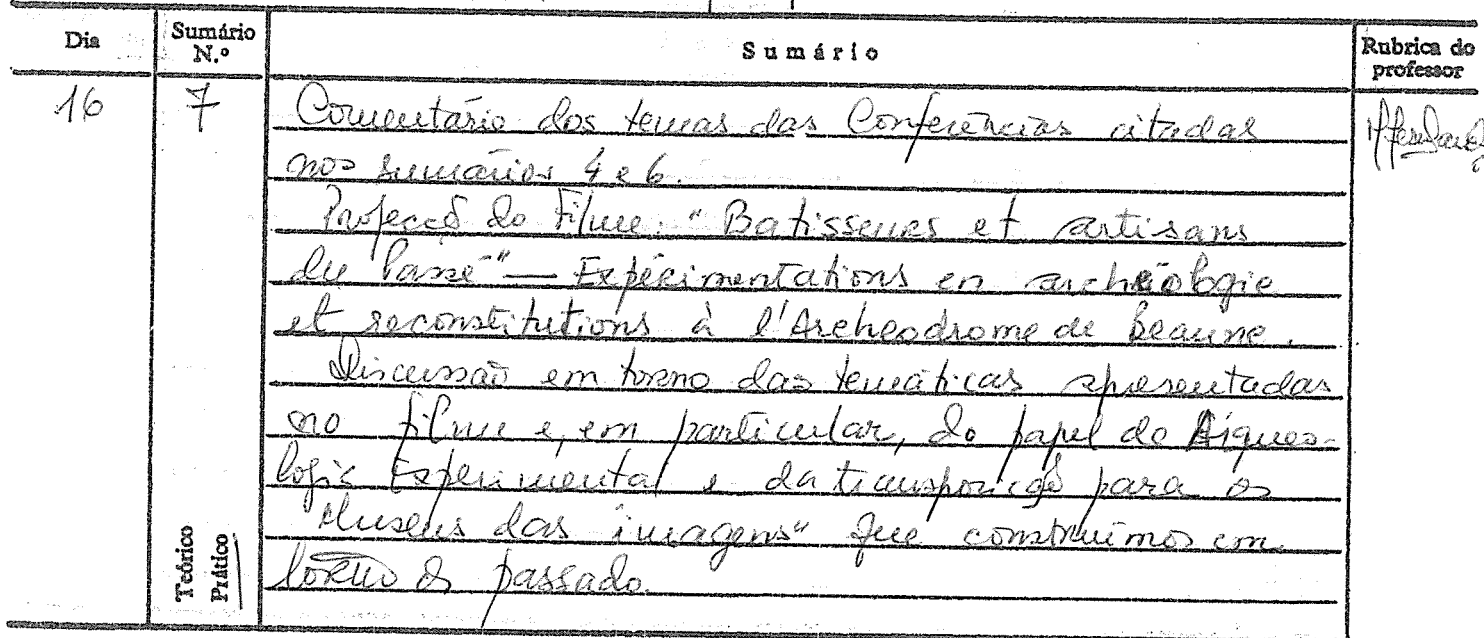 Dia Sumário N.º Sumário Rubrica do professor
16 7 Comentário dos temas das Conferências citadas
nos sumários 4 e 6.
Projecçõ do Filme: "Batisseurs et artisans
du Passé" — Expérimentations en archéologie
et reconstitutions à l'Archeodrome de Beaune.
Discussão em torno das temáticas apresentadas
no filme e, em particular, do papel da Arqueo-
logia Experimental e da transposição para os
Museus das imagens" que construímos em
torno do passado.
Teórico
Prático